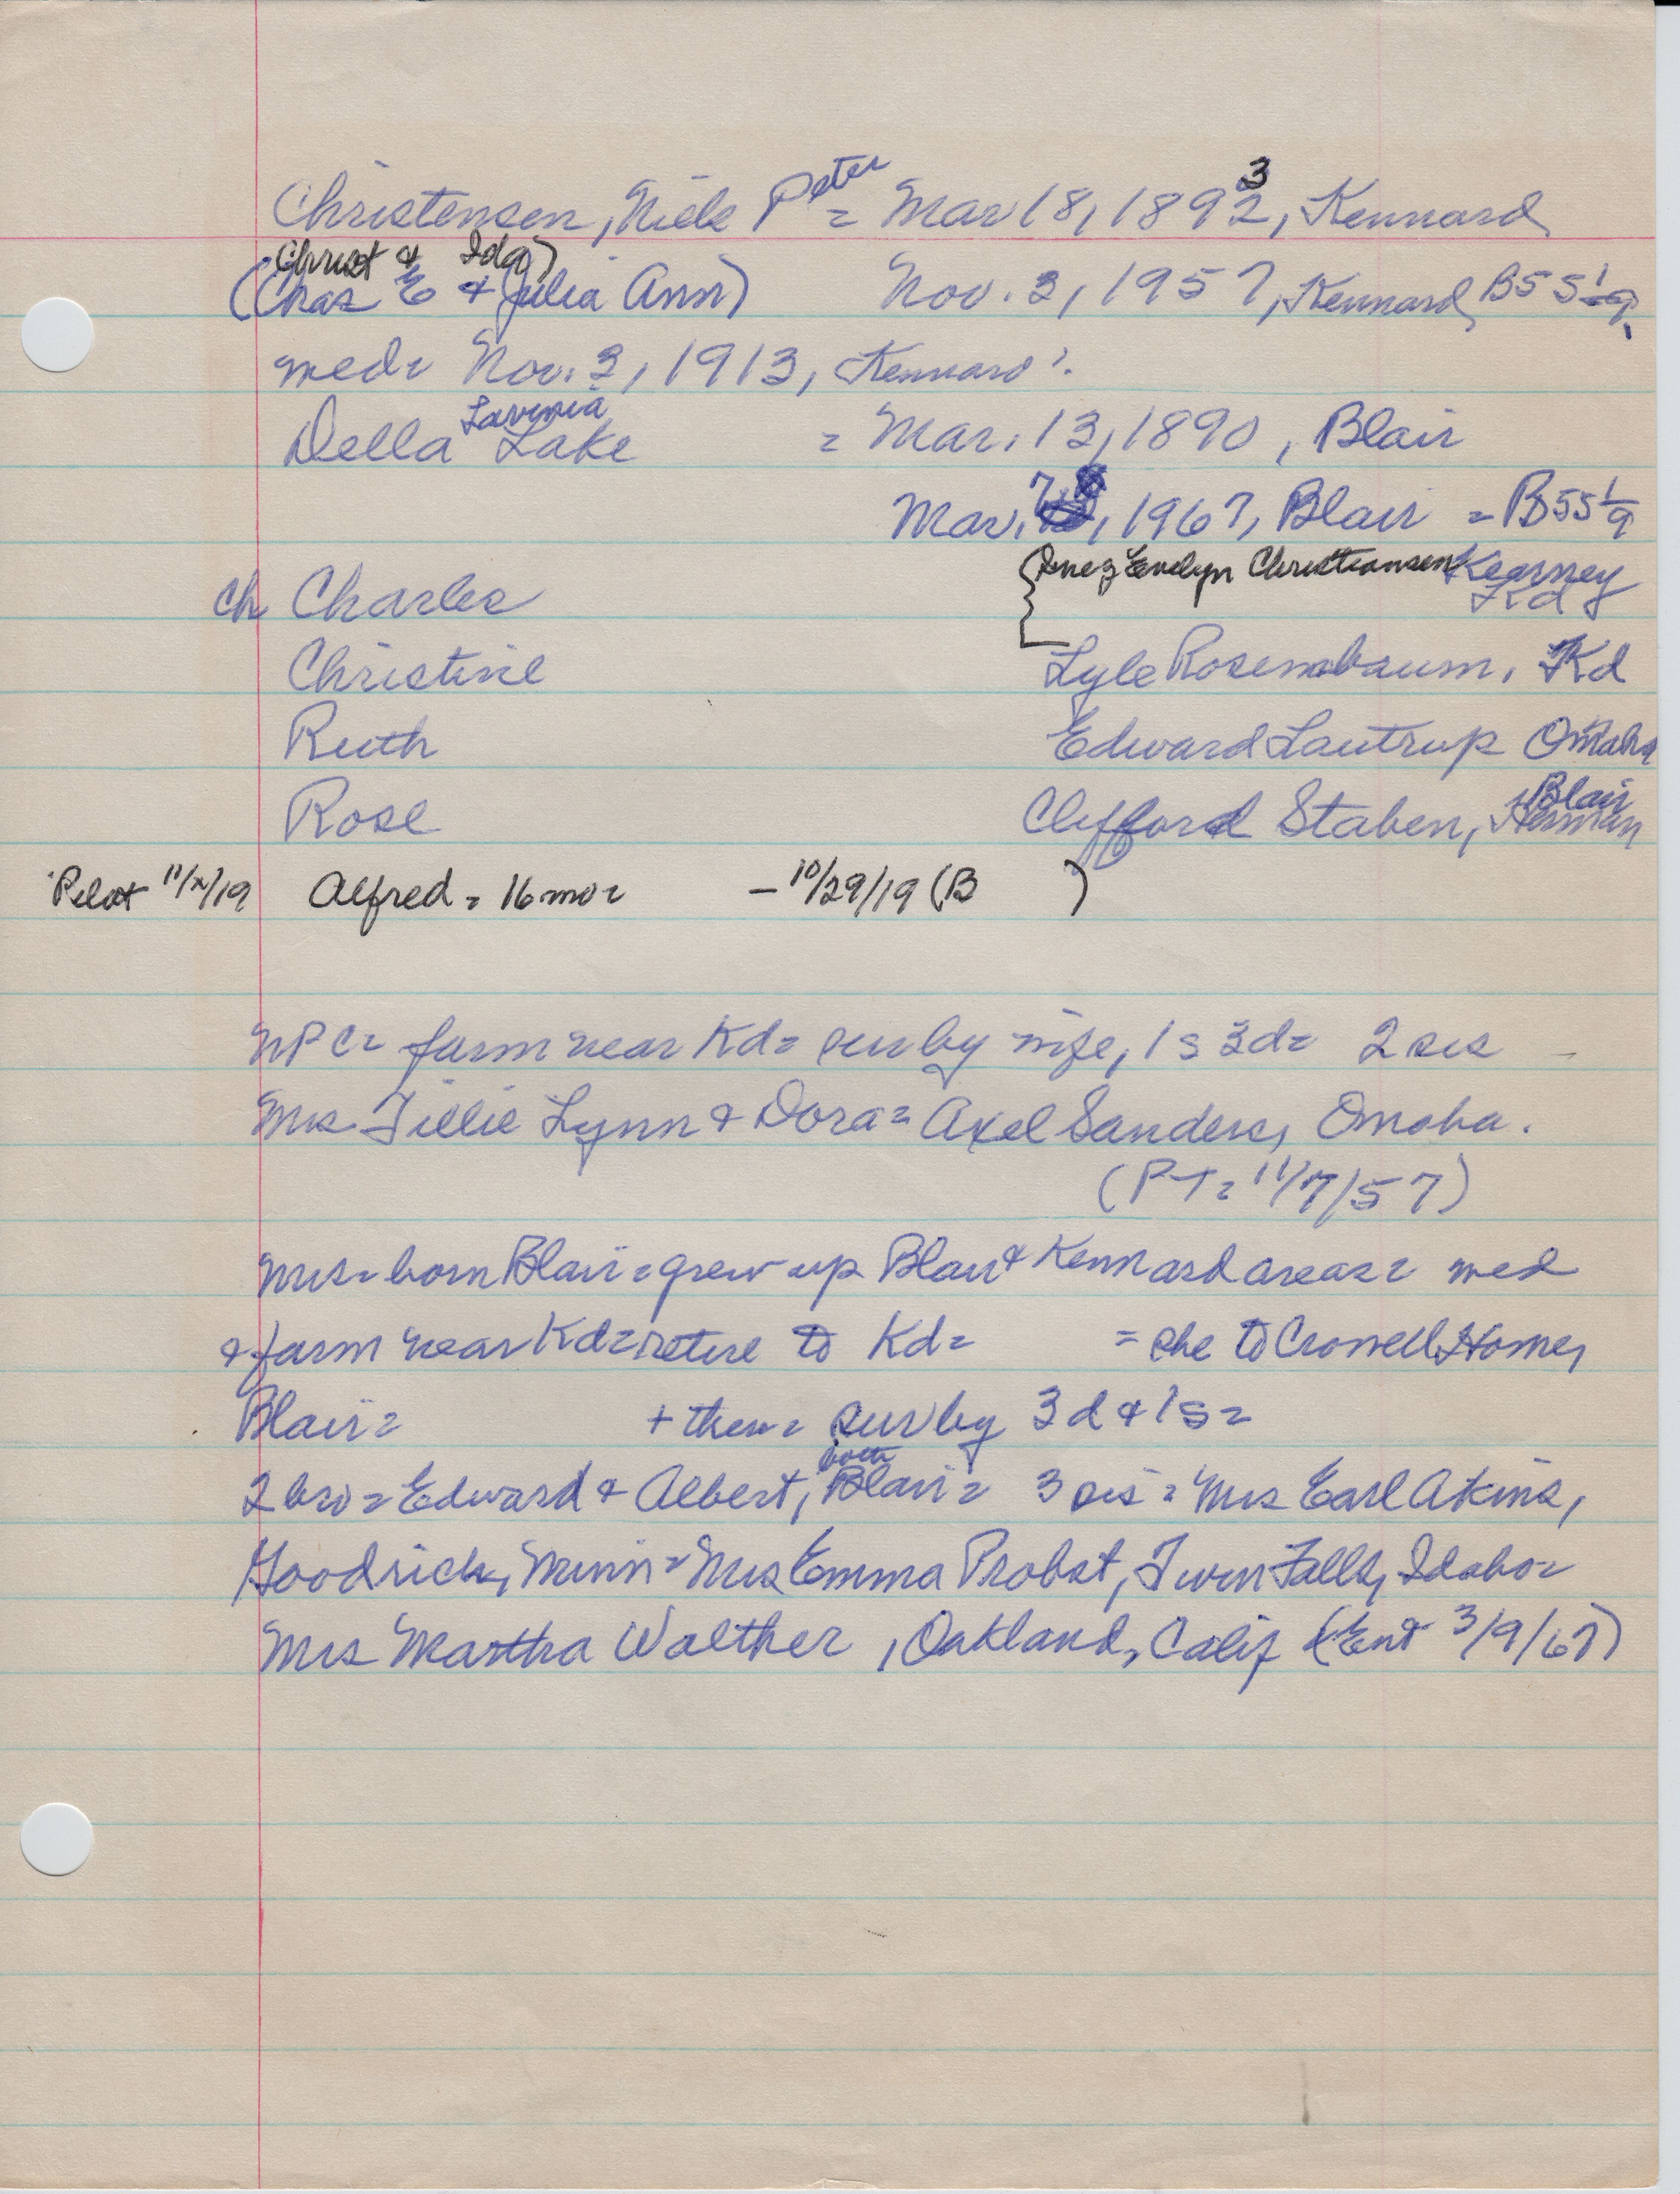 Christensen, Niels Peter = Mar 18, 1892, Kennard
3
Christ & Ida)
(Chas E & Julia Ann) Nov. 3, 1957, Kennard B55 1/9
med= Nov. 3, 1913, Kennard
Lavinia
Della Lake = Mar. 13, 1890, Blair
Mar. 7, 1967, Blair = B55 1/9
{Inez Evelyn Christiansen Kearney
ch Charles Kd
Christine Lyle Rosenbaum, Kd
Ruth Edward Lautrup Omaha
Blair
Rose Clifford Staben, Herman
Pilot 11/ /19 Alfred = 16 mo = - 10/29/19 (B )
NPC= farm near Kd= sur by wife, 1 s 3 d= 2 sis
Mrs Tillie Lynn & Dora= Axel Sanders, Omaha.
(PT= 11/7/57)
Mrs= born Blair= grew up Blair & Kennard areas= med
& farm near Kd= retire to Kd= = she to Crowell Home,
Blair= + then= sur by 3 d & 1 s=
both
2 bro= Edward & Albert, Blair= 3 sis= Mrs Earl Akins,
Goodrick, Minn= Mrs Emma Probst, Twin Falls, Idaho=
Mrs Martha Walther, Oakland, Calif (Ent 3/9/67)